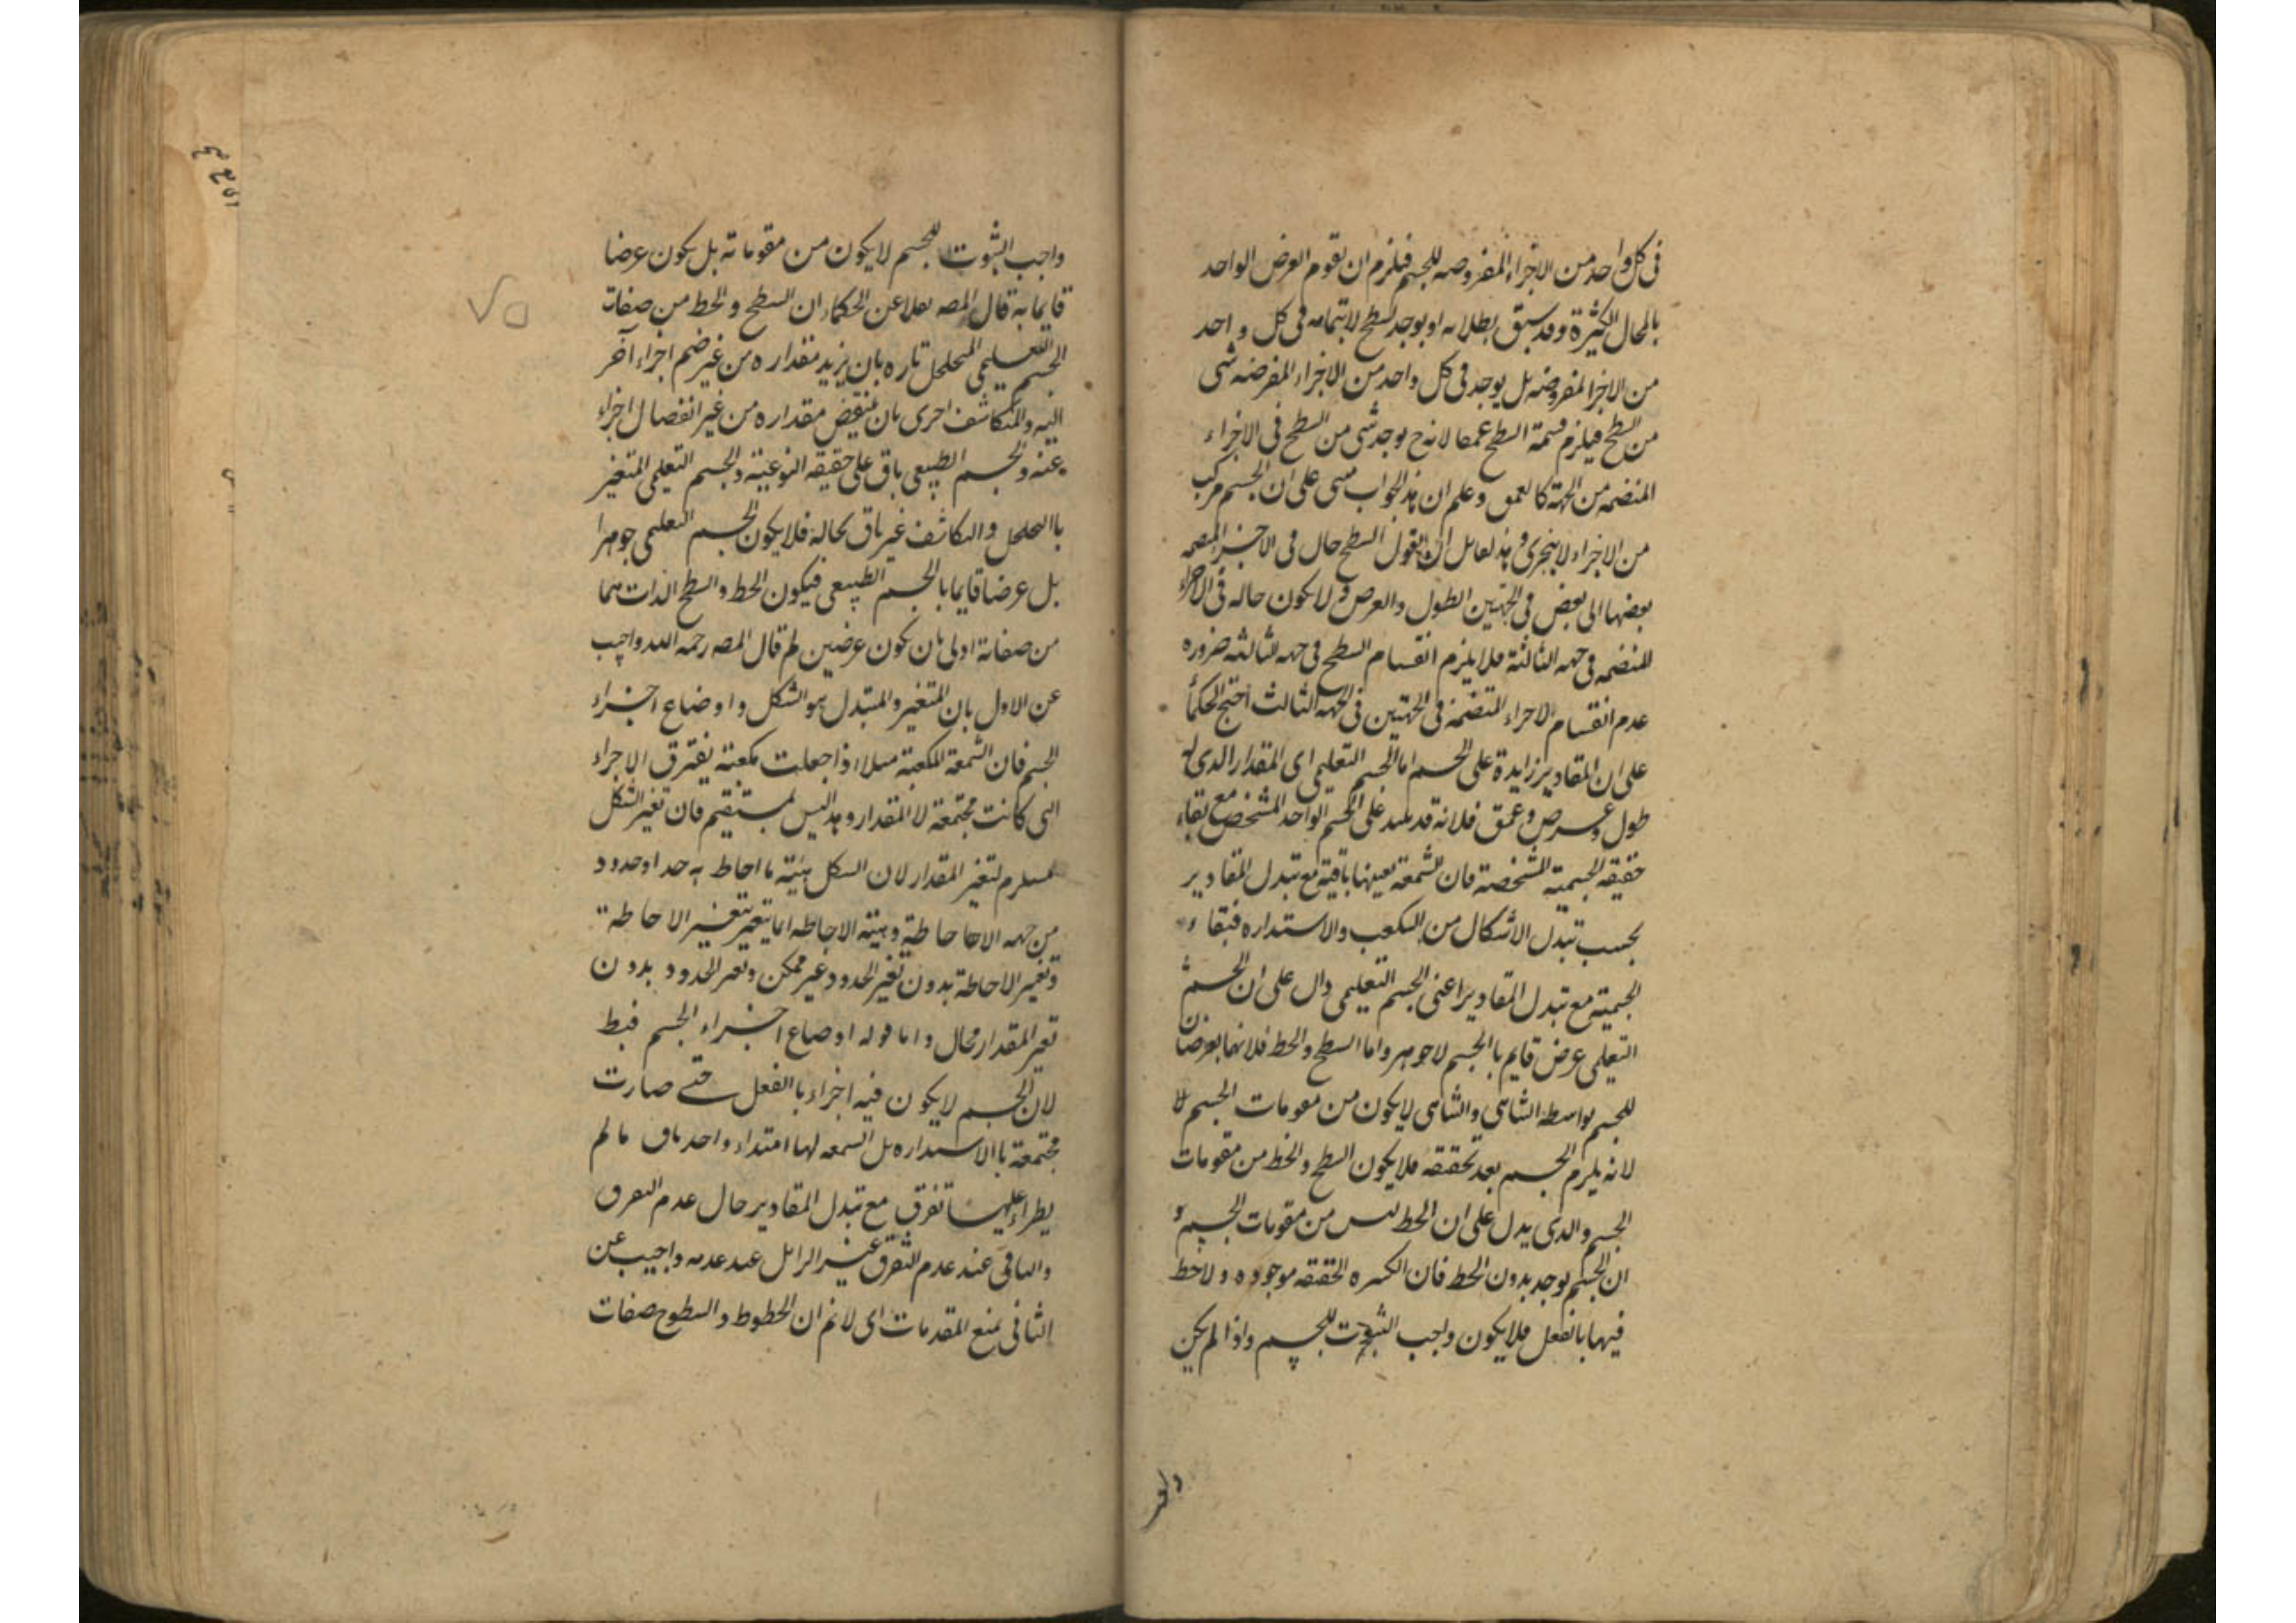 فى كل واحد من الاجزاء المفروضه للجسم فيلزم ان يقوم العرض الواحد
بالمحال الكثيرة وقد سبق بطلانه او يوجد السطح لا بتمامه فى كل واحد
من الاجزا المفروضه بل يوجد فى كل واحد من الاجزاء المفرضه شى
من السطح فيلزم قسمة السطح عمقا لانه ح يوجد شى من السطح فى الاجزاء
المنضمه من الجهة كالعمق وعلم ان هذا الجواب مبنى على ان الجسم مركب
من الاجزاء لا يتجزى و هذا لقايل ان يقول السطح حال فى الاجزاء المنضمه
بعضها الى بعض فى الجهتين الطول والعرض و لا يكون حاله فى الاجزاء
المنضمه فى جهه الثالثة فلا يلزم انقسام السطح فى جهه الثالثه ضروره
عدم انقسام الاجراء المنضمة فى الجهتين فى الجهه الثالث احتج الحكما
على ان المقادير زايدة على الجسم اما الجسم التعليمى اى المقدار الذى له
طول وعرض وعمق فلانه قد يتبدل على الجسم الواحد المشخص مع بقاء
حقيقه الجسمية المشخصة فان الشمعة بعينها باقية مع تبدل المقادير
بحسب تبدل الاشكال من التكعب والاستداره فبقاء
الجسمية مع تبدل المقادير اعنى الجسم التعليمى دال على ان الجسم
التعلمى عرض قايم باالجسم لا جوهر واما السطح والخط فلانهما يعرضان
للجسم بواسطه التناهى والتناهى لا يكون من مقومات الجسم لا
لانه يلزم الجسم بعد تحققه فلا يكون السطح والخط من مقومات
الجسم والذى يدل على ان الخط ليس من مقومات الجسم و
ان الجسم يوجد بدون الخط فان الكره الحقيقه موجوده ولا خط
فيها بالفعل فلا يكون واجب الثبوت للجسم واذا لم يكن
واجب
واجب الثبوت للجسم لا يكون من مقوماته بل يكون عرضا
قايما به قال المصه نقلا عن الحكماء ان السطح والخط من صفات
الجسم التعليمى المتخلخل تاره بان يزيد مقداره من غير ضم اجزاء آخر
اليه والمتكاشف اخرى بان ينقض مقداره من غير انفصال اجزاء
عنه والجسم الطبيعى باق على حقيقه النوعية والجسم التعلمى المتغير
باالتخلخل والتكاثف غير باق بحاله فلا يكون الجسم التعلمى جوهرا
بل عرضا قايما بالجسم الطبيعى فيكون الخط والسطح الذات هما
من صفاته اولى بان يكون عرضين ثم قال المصه رحمه الله واجيب
عن الاول بان المتغير والمتبدل هو الشكل واوضاع اجزاء
الجسم فان الشمعة المكعبة مثلا اذا جعلت مكعبة يفترق الاجزاء
التى كانت مجتمعة لا المقدار و هذا ليس بمستقيم فان تغير الشكل
مستلزم لتغير المقدار لان الشكل هيئة ما احاط به حد او حدود
من جهه الاحاحاطة وهيئة الاحاطه انما يتغير بتغير الاحاطة
وتغير الاحاطة بدون تغير الحدود غير ممكن وتغير الحدود بدون
تغير المقدار محال واما قوله اوضاع اجزاء الجسم فبط
لان الجسم لا يكون فيه اجزاء باالفعل حتى صارت
مجتمعة باالاستداره بل الشمعه لها امتداد واحد باق ما لم
يطراء عليها تفرق مع تبدل المقادير حال عدم التفرق
والباقى عند عدم التفرق غير الزائل عند عدمه واجيب عن
الثانى بمنع المقدمات اى لا نم ان الخطوط والسطوح صفات
٧٥